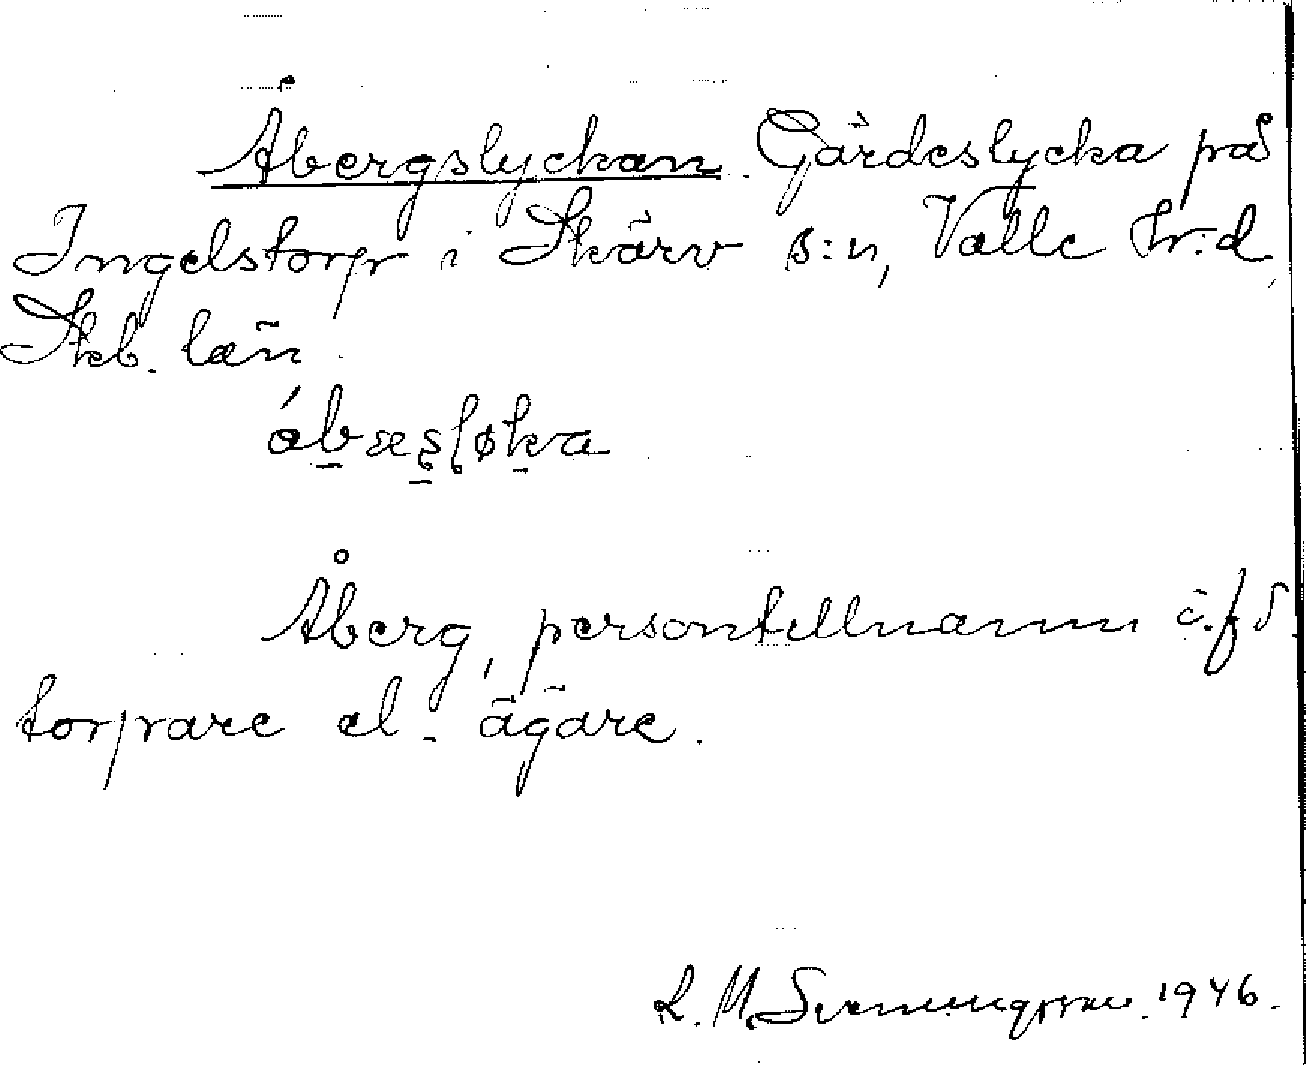 Åbergslyckan. Gärdeslycka på
Ingelstorp i Skärv s:n, Valle hr:d
Skb. län.
Åberg, persontillnamn å f.d.
torpare el. ägare.
R. M. Svenungsson. 1946.